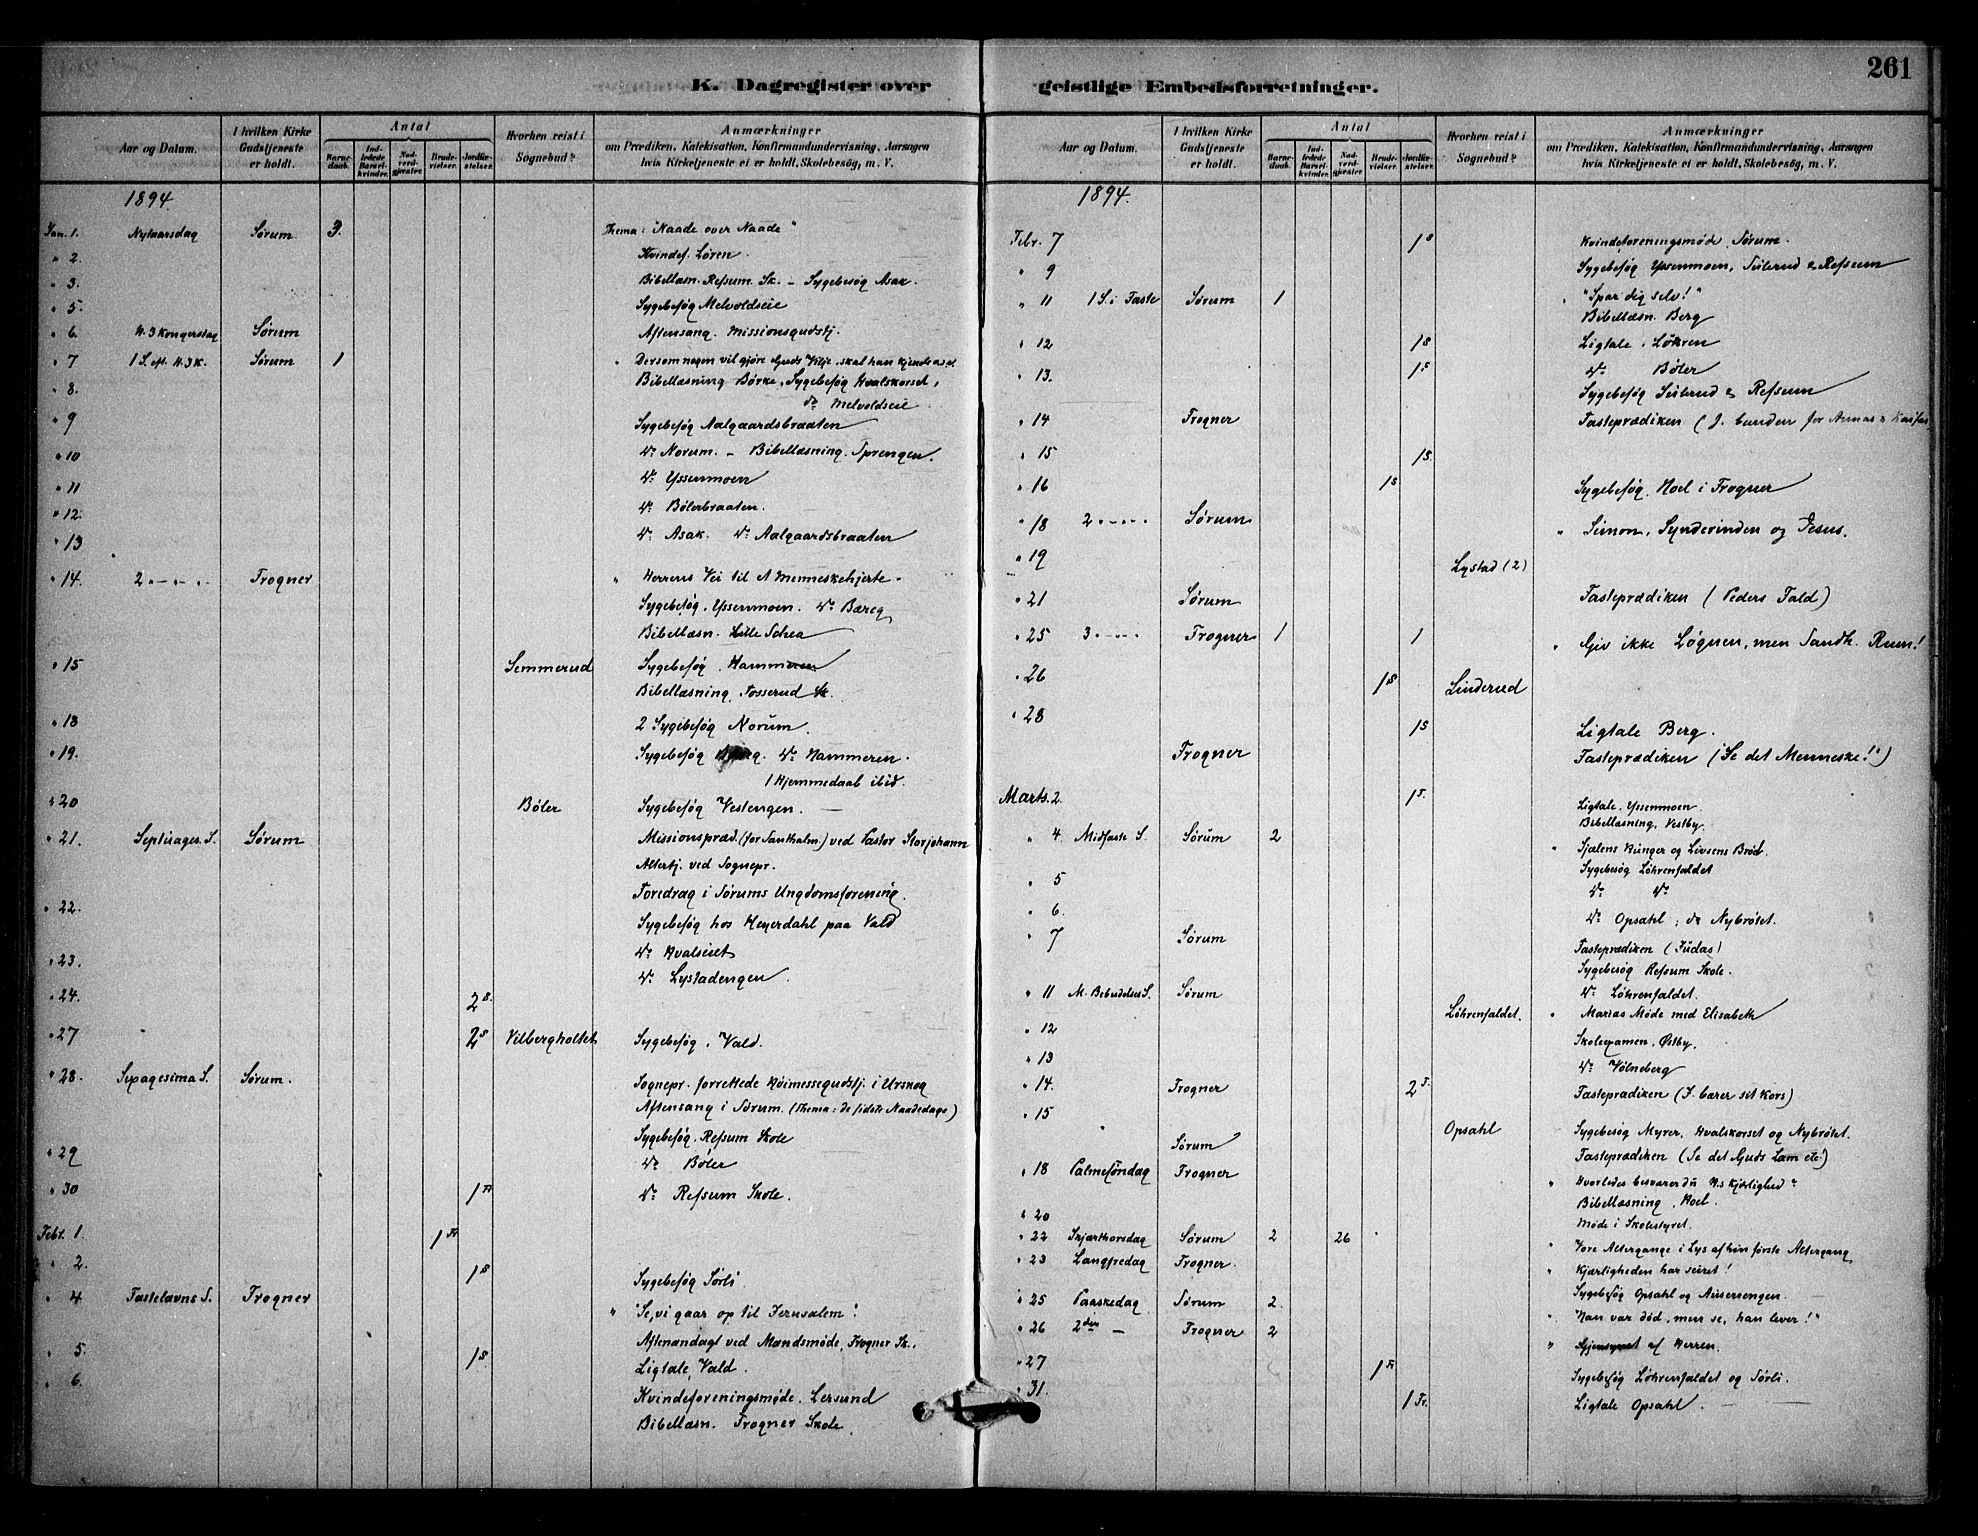 261
K. Dagregister over
geistlige Embedsforretninger.
Aar og Datum.
I hvilken Kirke Gudstjeneste er holdt.
Antal
Barnedaab.
Indledede Barselkvinder.
Nadverdgjæster.
Brudevielser.
Jordfæstelser.
Hvorhen reist i Sognebud?
Anmærkninger
om Prædiken, Katekisation, Konfirmandundervisning, Aarsagen
hvis Kirketjeneste ei er holdt, Skolebesög, m. V.
1894.
Jan. 1. Nytaarsdag Sørum 3. Thema: "Naade over Naade"
" 2. Kvindef. Løren.
" 3. Bibellæsn. Refsum Sk. – Sygebesøg Asak.
" 5. Sygebesøg Melvoldseie
" 6. H. 3 Kongersdag Sørum Aftensang. Missionsgudstj.
" 7 1 S. eft. H. 3 K. Sørum 1 " Dersom nogen vil gjøre Guds Vilje, skal han kjende
" 8. Bibellæsning Børke, Sygebesøg Hvalskorset,
do Melvoldseie
" 9 Sygebesøg Aalgaardsbraaten
" 10 do Norum. – Bibellæsning. Sprengen.
" 11 do Yssenmoen
" 12. do Bølerbraaten.
" 13 do Asak. do Aalgaardsbraaten
" 14. 2 " – " – " Frogner " Herrens Vei til et Menneskehjerte –
Sygebesøg. Yssenmoen. do Bæreg
Bibellæsn. Lille Schea
" 15 Semmerud Sygebesøg. Hammeren
Bibellæsning, Fosserud Sk.
" 18 2 Sygebesøg Norum.
" 19. Sygebesøg do Hammeren.
1 Hjemmedaab ibid.
" 20 Bøler Sygebesøg Vestengen. —
" 21. Septuages. S. Sørum Missionspræd. (for Santhalm.) ved Pastor Storjohann
Altertj. ved Sognepr.
Foredrag i Sørums Ungdomsforening.
" 22. Sygebesøg hos Heyerdahl paa Vald
do Hvalseiet
" 23. do Lystadengen
" 24. 2 S.
" 27 2 S Vilbergholtet Sygebesøg, Vald.
" 28. Sexagesima S. Sørum. Sognepr. forrettede Høimessegudstj. i Urskog
Aftensang i Sørum. (Thema: de sidste Naadedage)
Sygebesøg, Refsum Skole
" 29 do Bøler
" 30 1 Fr do Refsum Skole.
Febr. 1. 1 Fr
" 2. 1 S Sygebesøg Sørli
" 4 Fastelavns S. Frogner " "Se, vi gaar op til Jerusalem".
Aftenandagt ved Mandsmøde, Frogner Sk.
" 5. 1 S Ligtale, Vald.
" 6. Kvindeforeningsmøde. Lersund
Bibellæsn. Frogner Skole.
Aar og Datum.
I hvilken Kirke Gudstjeneste er holdt.
Antal
Barnedaab.
Indledede Barselkvinder.
Nadverdgjæster.
Brudevielser.
Jordfæstelser.
Hvorhen reist i Sognebud?
Anmærkninger
om Prædiken, Katekisation, Konfirmandundervisning, Aarsagen
hvis Kirketjeneste ei er holdt, Skolebesög, m. V.
1894.
Febr. 7 1 S Kvindeforeningsmøde, Sørum.
" 9 Sygebesøg Yssenmoen, Seilerud & Refsum
" 11 1 S. i Faste Sørum 1 " "Spar dig selv!"
Bibellæsn. Berg
" 12 1 S Ligtale, Løkren
" 13. 1 S do Bøler
Sygebesøg Seilerud & Refsum
" 14 Frogner Fasteprædiken (J. bunden for Annas & Kaifas
" 15 1 S.
" 16 1 S Sygebesøg. Hoel i Frogner
" 18 2 " – " – " Sørum " Simon, Synderinden og Jesus.
" 19 Lystad (2)
" 21 Sørum Fasteprædiken (Peders Fald)
" 25 3 " – " – " Frogner 1 1 " Giv ikke Løgnen, men Sandh. Rum!
" 26 1 S Linderud
" 28 1 S Ligtale Berg.
Frogner Fasteprædiken (Se det Menneske!")
Marts. 2. 1 S. Ligtale, Yssenmoen
Bibellæsning, Vestby.
" 4 Midfaste S. Sørum 2 " Sjælens Hunger og Livsens Brød.
Sygebesøg Löhrenfaldet
" 5 do do
" 6. do Opsahl, do Nybrötet.
" 7 Sørum Fasteprædiken (Judas)
Sygebesøg Refsum Skole.
" 11 M. Bebudelses S. Sørum do Löhrenfaldet.
Löhrenfaldet. " Marias Møde med Elisabeth
" 12 Skoleexamen, Østby.
" 13 do Völneberg
" 14. Frogner 2 S. Fasteprædiken (J. bærer sit Kors)
" 15 Opsahl Sygebesøg Myrer, Hvalskorset og Nybrötet.
Sørum Fasteprædiken (Se det Guds Lam etc!)
" 18 Palmesöndag Frogner " Hvorledes besvarer du H.s Kjærlighed?
Bibellæsning, Hoel.
" 20 Møde i Skolestyret.
" 22 Skjærthorsdag Sørum 2 26 " Vore Altergange i Lys af hin første Altergang
" 23 Langfredag Frogner. " Kjærligheden har seiret!
Sygebesøg Opsahl og
" 25 Paaskedag Sørum 2. " "Han var död, men se, han lever!"
" 26 2den – Frogner 2 " af Herren.
" 27 1 Fr Sygebesøg Löhrenfaldet og Sørli.
" 31. 1 Fr. Ligtale Opsahl.